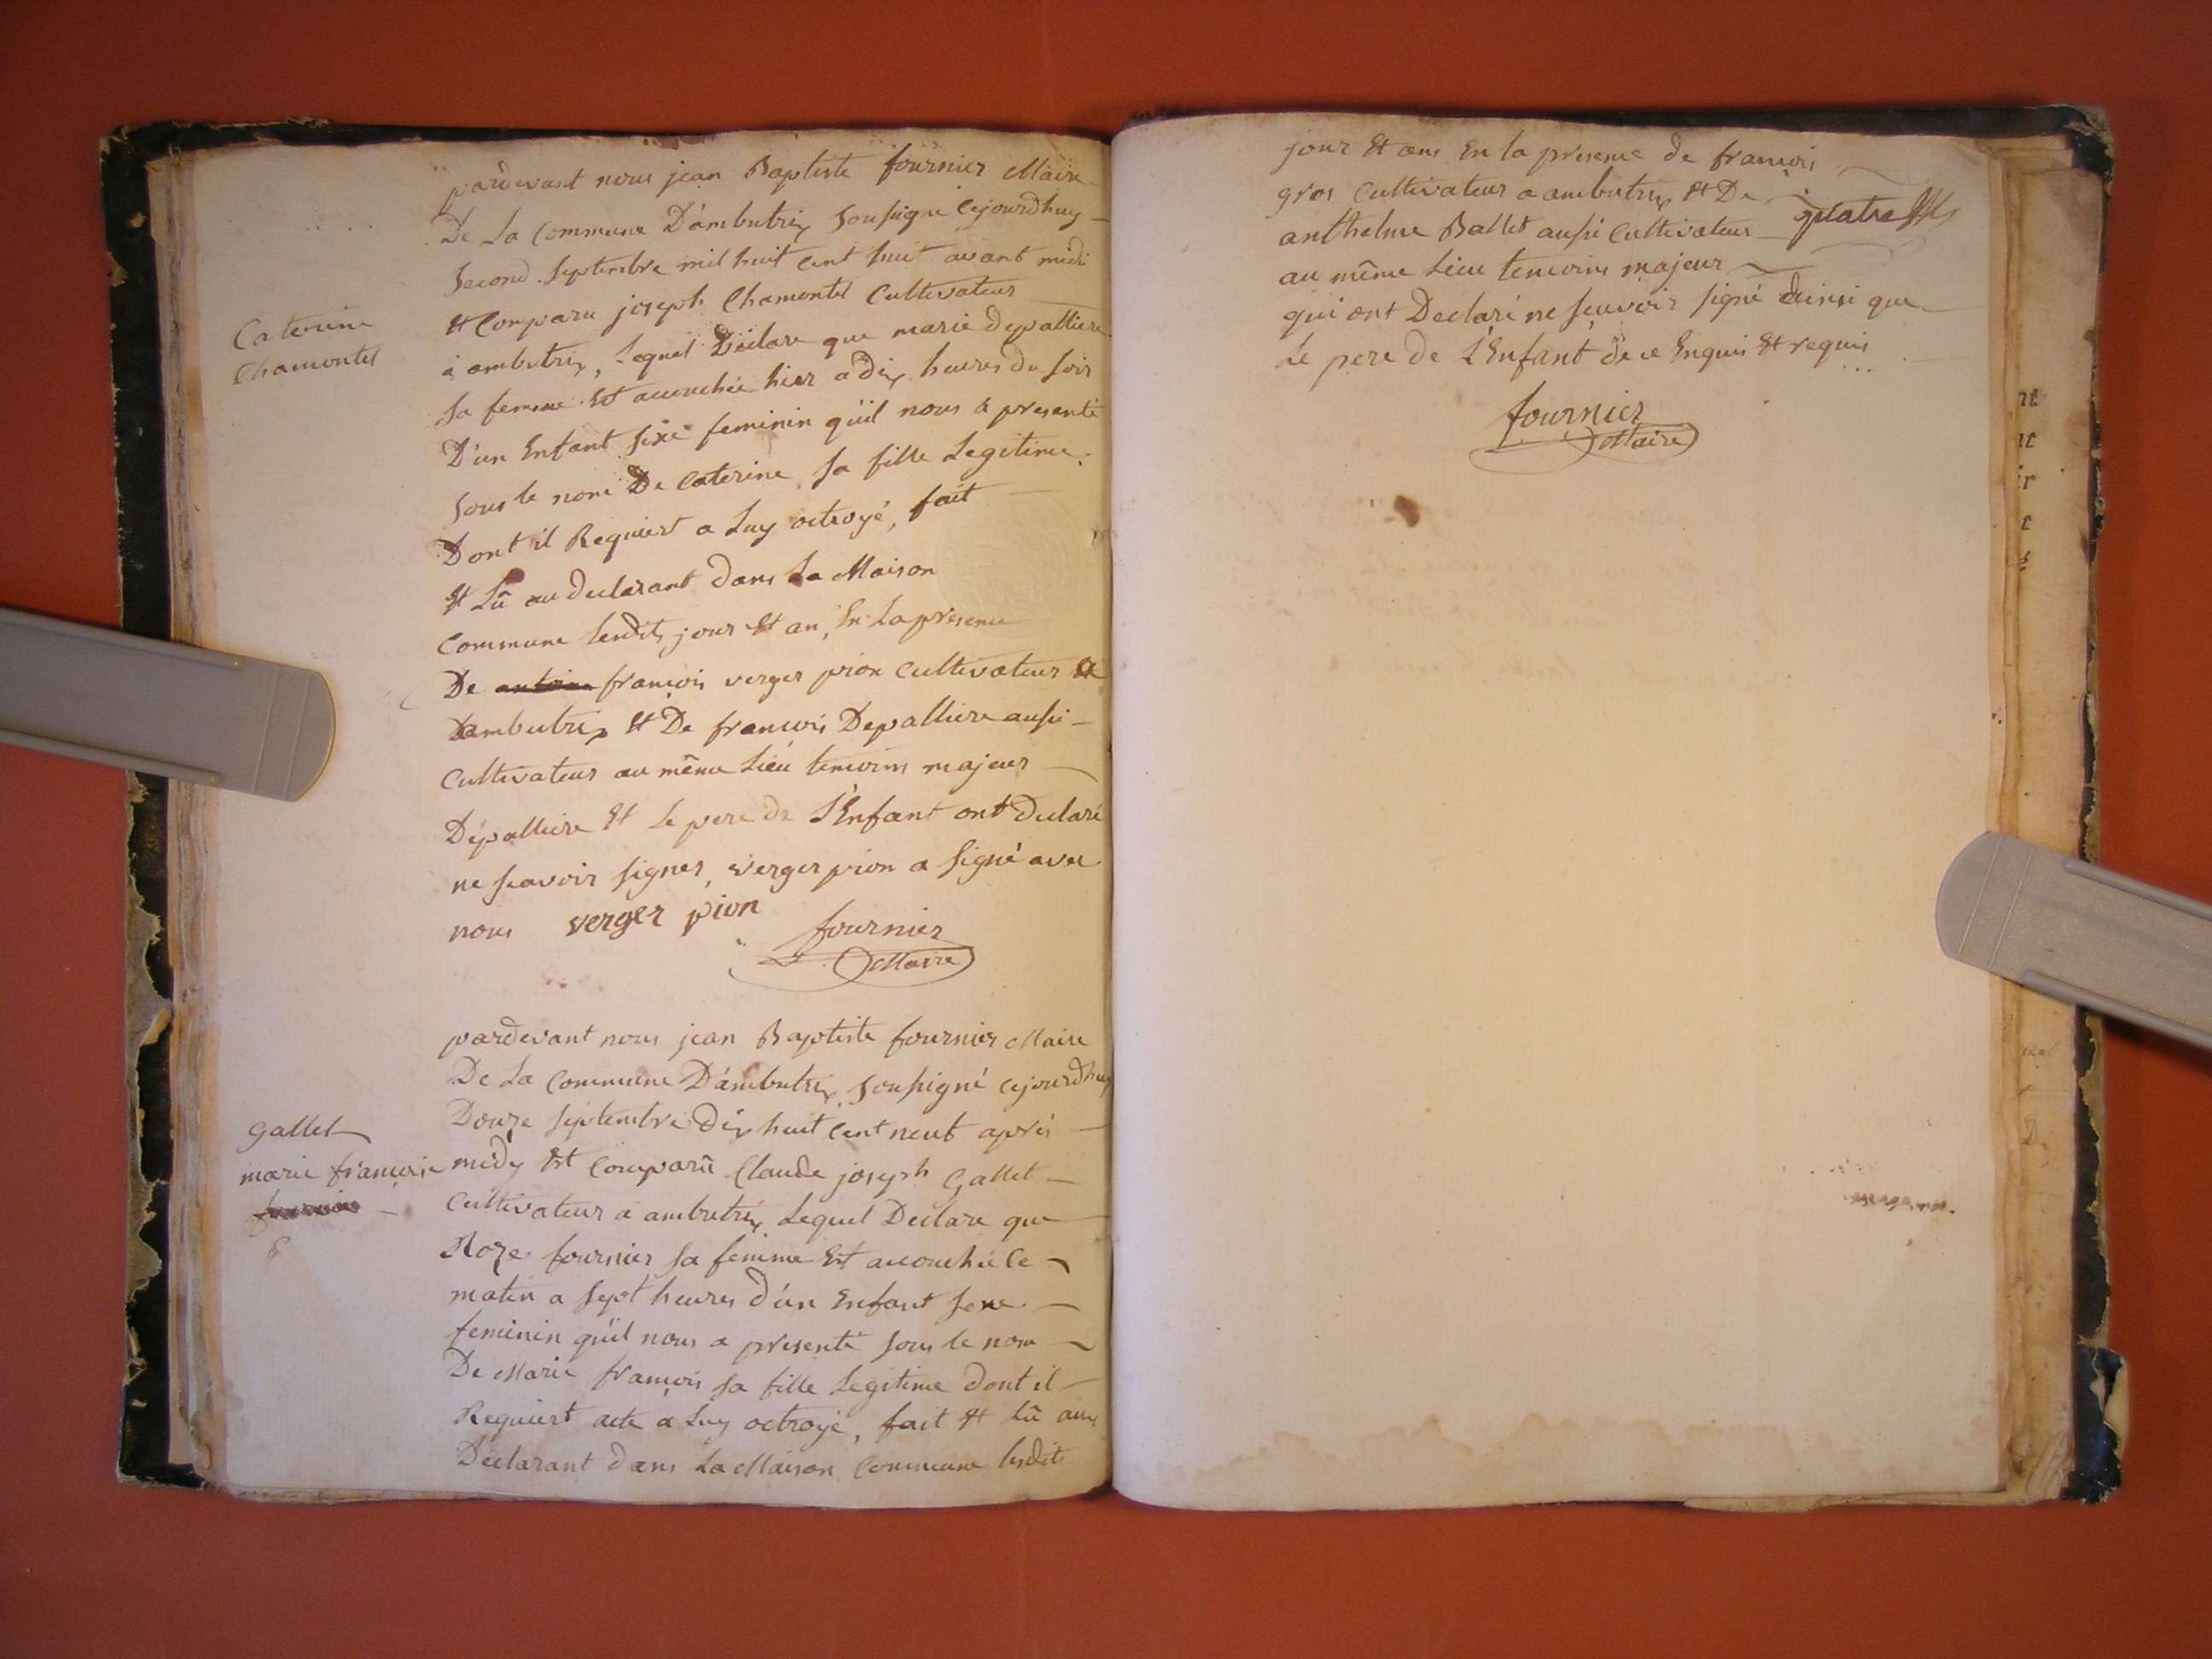 pardevant nous jean Baptiste fournier Maire
De La Commune D'ambutrix Soussigné Cejourdhuy
Second Septembre mil huit Cent huit avant midi
Caterine
Chamontet
Et Comparu joseph Chamontet Cultivateur
à ambutrix, Lequel Déclare que marie depalliere
Sa femme Est accouchée hier a dix heures du soir
D'un Enfant Sexe feminin qu'il nous à presenté
Sous le nom De Caterine Sa fille Legitime.
Dont il Requiert a Luy octroyé, fait
Et Lû au declarant dans La Maison
Commune lesdits jour Et an, En La presence
De antoine françois verger pion Cultivateur
Dambutrix Et De françois Depalliere aussi
Cultivateur au même Lieu temoins majeur
Dépalliere Et Le pere de L'Enfant ont Declaré
ne scavoir signer, verger pion a signé avec
nous verger pion
fournier
Maire
pardevant nous jean Baptiste fournier Maire
De La Commune D'ambutrix Soussigné cejourdhuy
Douze Septembre dix huit Cent neuf aprés
Gallet
marie françoise
midy Est Comparû Claude joseph Gallet
Cultivateur à ambutrix Lequel Declare que
Roze fournier Sa femme Est accouchée Ce
matin a Sept heures d'un Enfant Sexe
feminin qu'il nous a presenté Sous le nom
De Marie françois Sa fille Legitime dont il
Requiert acte a Luy octroyé, fait Et Lû aux
Déclarant dans La Maison Commune lesdits
jour Et ans En la presence de françois
gros Cultivateur a ambutrix Et De
anthelme Ballet aussi Cultivateur
quatre
au même Lieu temoins majeur
qui ont Declaré ne scavoir signé ainsi que
Le pere de L'Enfant de ce Enquis Et requis
fournier
Maire